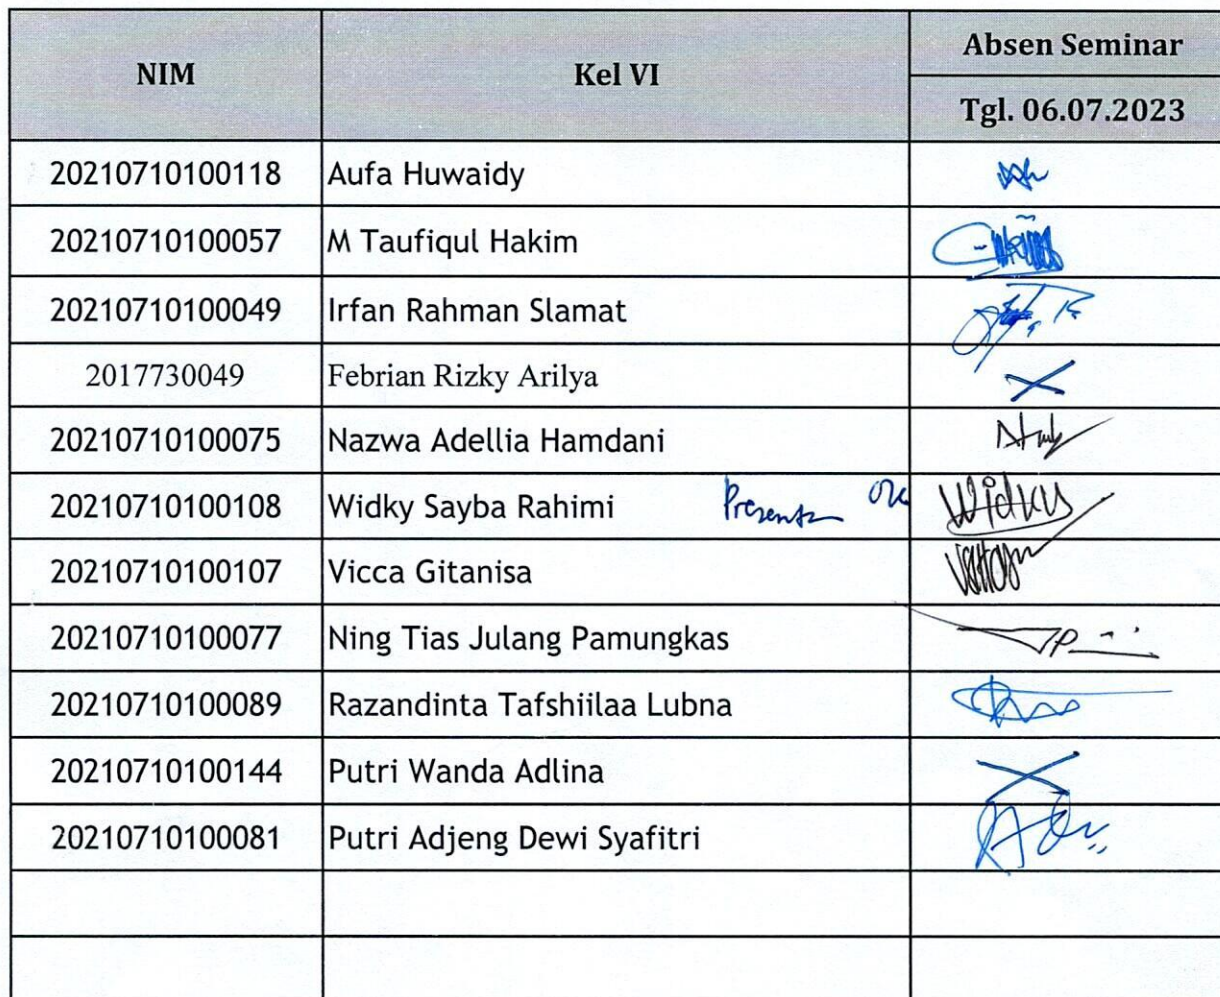 NIM Kel VI Absen Seminar
Tgl. 06.07.2023
20210710100118 Aufa Huwaidy
20210710100057 M Taufiqul Hakim
20210710100049 Irfan Rahman Slamat
2017730049 Febrian Rizky Arilya
20210710100075 Nazwa Adellia Hamdani
20210710100108 Widky Sayba Rahimi Widky
20210710100107 Vicca Gitanisa
20210710100077 Ning Tias Julang Pamungkas
20210710100089 Razandinta Tafshiilaa Lubna
20210710100144 Putri Wanda Adlina
20210710100081 Putri Adjeng Dewi Syafitri